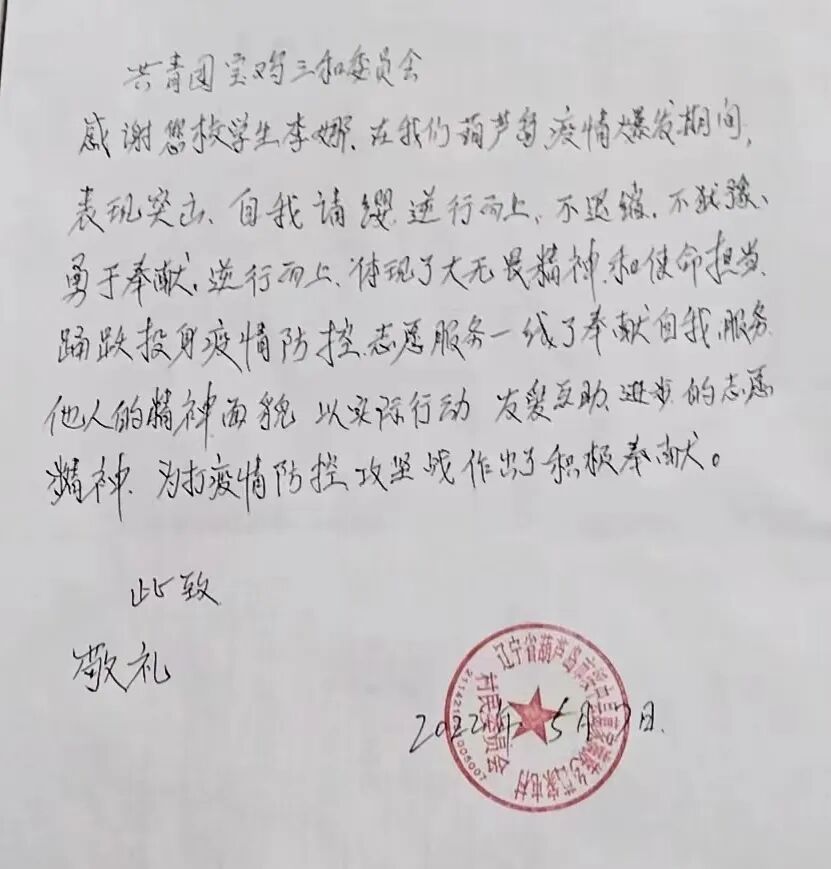 共青团宝鸡三和委员会
感谢您校学生李娜、在我们葫芦岛、疫情爆发期间,
表现突击、自我请缨、逆行而上、不退缩、不犹豫、
勇于奉献、逆行而上、体现了大无畏精神、和使命担当、
踊跃投身疫情防控、志愿服务一线了奉献自我、服务
他人的精神面貌 以实际行动 发裂互助、进步的志愿
精神、为打疫情防控、攻坚战作出了积极奉献。
此致
敬礼
2022年5月7日.
辽宁省葫芦岛市
村民委员会